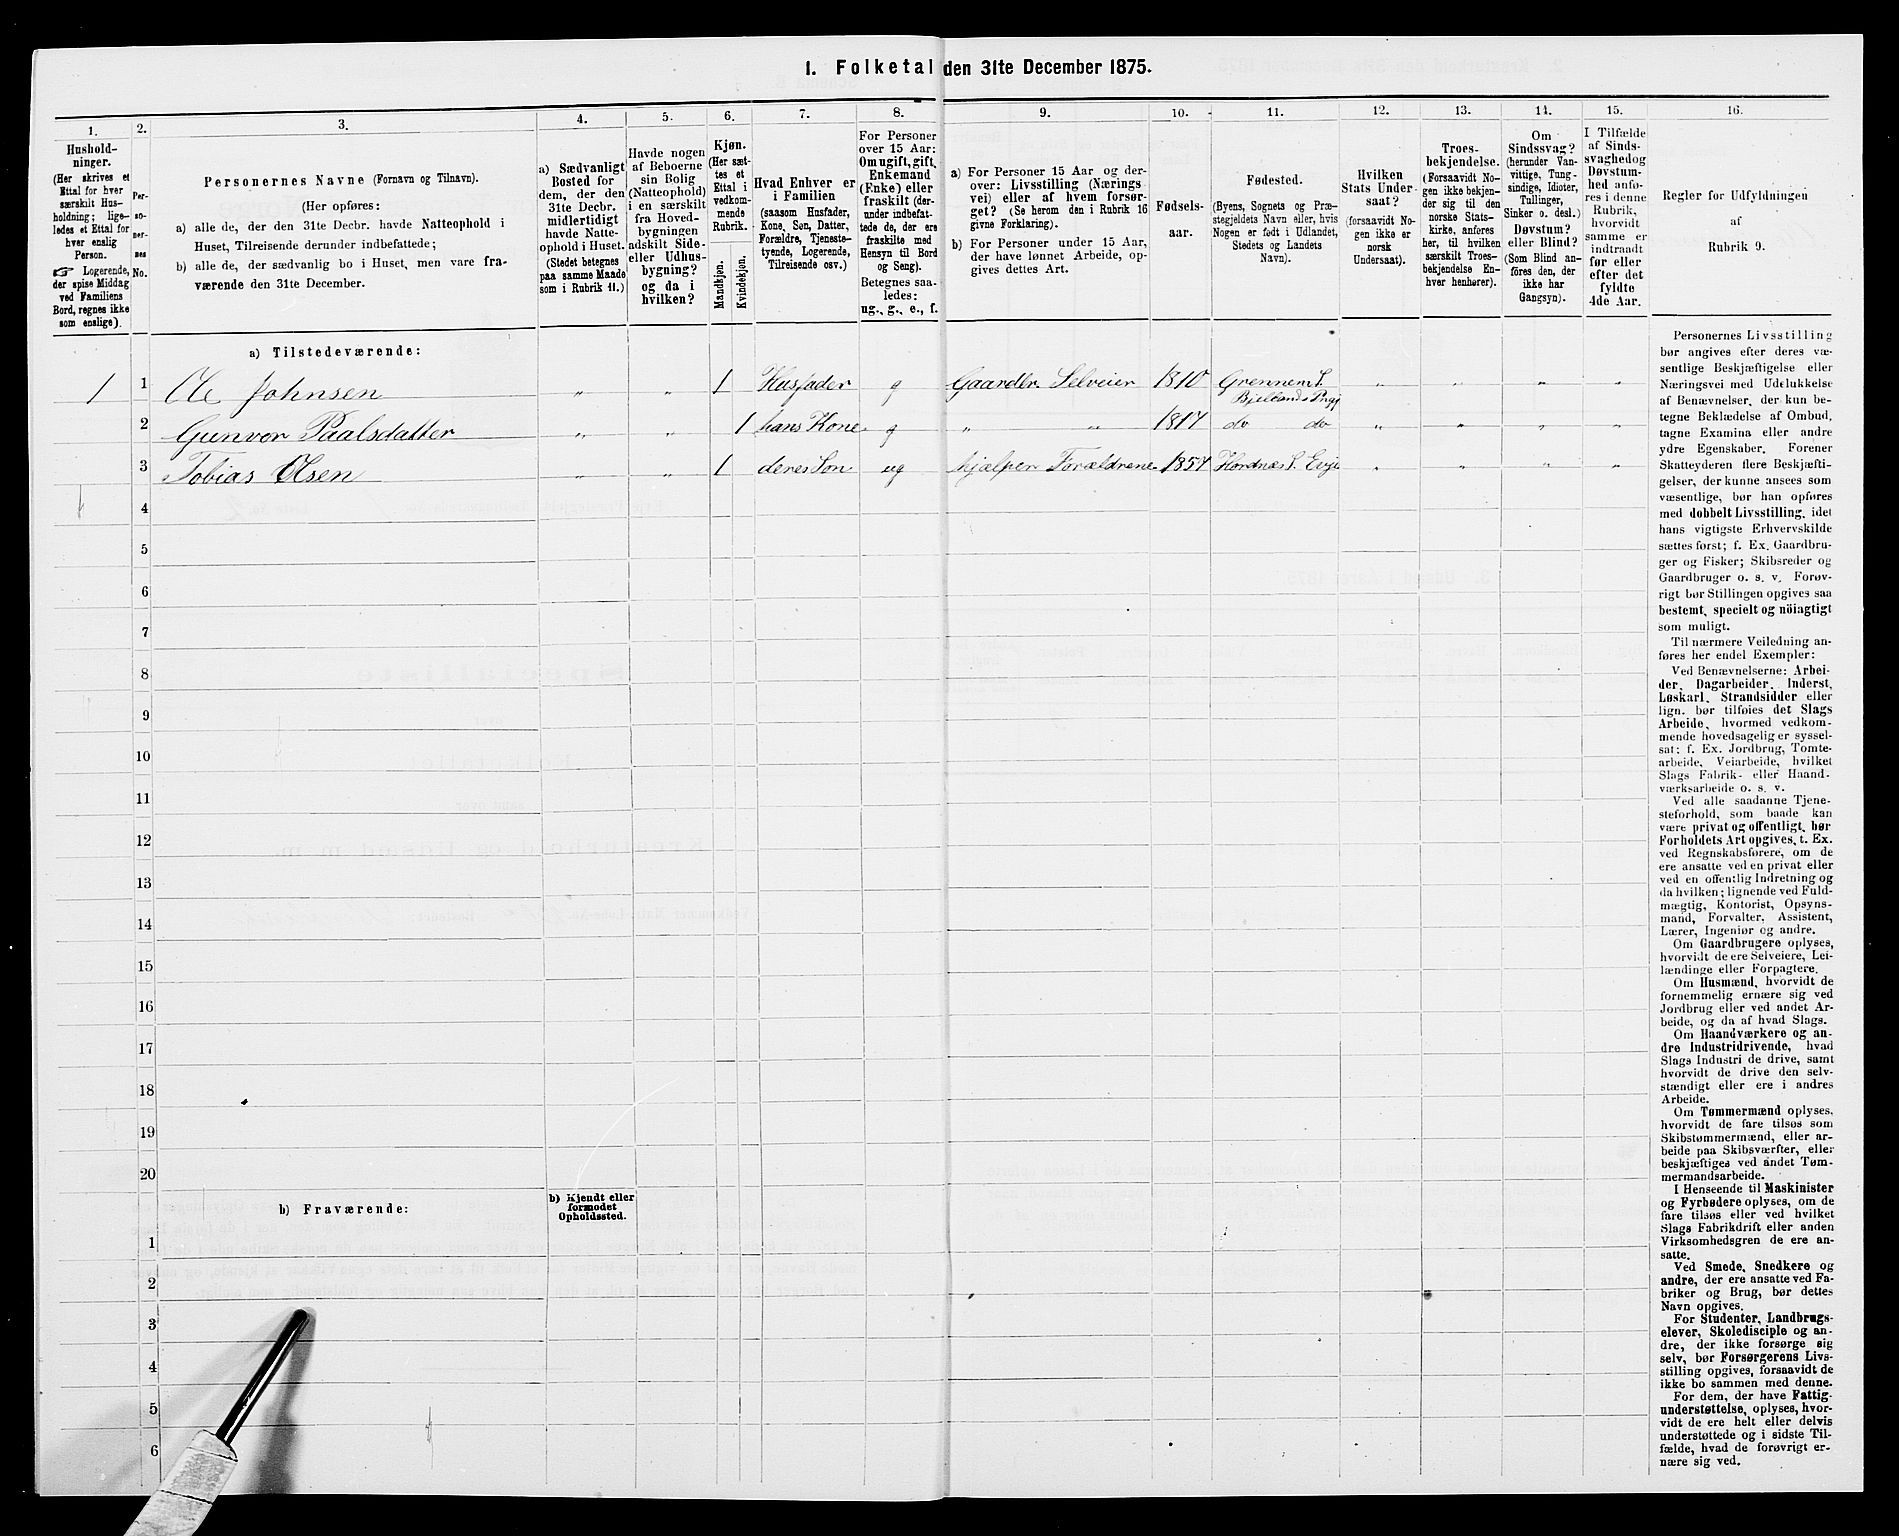 I. Folketal den 31te December 1875.
1.
Hushold-
ninger.
(Her skrives et
Ettal for hver
særskilt Hus-
holdning; lige-
ledes et Ettal for
hver enslig
Person.
☞ Logerende,
der spise Middag
ved Familiens
Bord, regnes ikke
som enslige).
2.
Per-
so-
ner-
nes
No.
3.
Personernes Navne (Fornavn og Tilnavn).
(Her opføres:
a) alle de, der den 31te Decbr. havde Natteophold i
Huset, Tilreisende derunder indbefattede;
b) alle de, der sædvanlig bo i Huset, men vare fra-
værende den 31te December.
4.
a) Sædvanligt
Bosted for
dem, der den
31te Decbr.
midlertidigt
havde Natte-
ophold i Huset.
(Stedet betegnes
paa samme Maade
som i Rubrik 11.)
5.
Havde nogen
af Beboerne
sin Bolig
(Natteophold)
i en særskilt
fra Hoved-
bygningen
adskilt Side-
eller Udhus-
bygning?
og da i
hvilken?
6.
Kjøn.
(Her sæt-
tes et
Ettal i
vedkom-
mende
Rubrik.
Mandkjøn.
Kvindekjøn.
7.
Hvad Enhver er
i Familien
(saasom Husfader,
Kone, Søn, Datter,
Forældre, Tjeneste-
tyende, Logerende,
Tilreisende osv.)
8.
For Personer
over 15 Aar:
Om ugift, gift,
Enkemand
(Enke) eller
fraskilt (der-
under indbefat-
tede de, der ere
fraskilte med
Hensyn til Bord
og Seng).
Betegnes saa-
ledes:
ug., g., e., f.
9.
a) For Personer 15 Aar og der-
over: Livsstilling (Nærings-
vei) eller af hvem forsør-
get? (Se herom den i Rubrik 16
givne Forklaring).
b) For Personer under 15 Aar,
der have lønnet Arbeide, op-
gives dettes Art.
10.
Fødsels-
aar.
11.
Fødested.
(Byens, Sognets og Præ-
stegjeldets Navn eller, hvis
Nogen er født i Udlandet,
Stedets og Landets
Navn).
12.
Hvilken
Stats Under-
saat?
(forsaavidt No-
gen ikke er
norsk
Undersaat).
13.
Troes-
bekjendelse.
(Forsaavidt No-
gen ikke bekjen-
der sig til den
norske Stats-
kirke, anføres
her, til hvilken
særskilt Troes-
bekjendelse En-
hver henhører).
14.
Om
Sindssvag?
(herunder Van-
vittige, Tung-
sindige, Idioter,
Tullinger,
Sinker o. desl.)
Døvstum?
eller Blind?
(Som Blind an-
føres den, der
ikke har
Gangsyn).
15.
I Tilfælde
af Sinds-
svaghed og
Døvstum-
hed anfø-
res i denne
Rubrik,
hvorvidt
samme er
indtraadt
før eller
efter det
fyldte
4de Aar.
16.
Regler for Udfyldningen
af
Rubrik 9.
a) Tilstedeværende:
1 1 Ole Johnsen „ „ 1 Husfader g Gaardbr. Selveier 1810 Grennem S. Bjellands Prgj „ „ „ „
2 Gunvor Paalsdatter „ „ 1 hans Kone g „ „ 1817 do do „ „ „ „
3 Tobias Olsen „ „ 1 deres Søn ug hjælper Forældrene 1857 Hordnæs S. Evje „ „ „ „
4
5
6
7
8
9
10
11
12
13
14
15
16
17
18
19
20
b) Fraværende:
b) Kjendt eller
formodet
Opholdssted.
1
2
3
4
5
6
Personernes Livsstilling
bør angives efter deres væ-
sentlige Beskjæftigelse eller
Næringsvei med Udelukkelse
af Benævnelser, der kun be-
tegne Beklædelse af Ombud,
tagne Examina eller andre
ydre Egenskaber. Forener
Skatteyderen flere Beskjæfti-
gelser, der kunne ansees som
væsentlige, bør han opføres
med dobbelt Livsstilling, idet
hans vigtigste Erhvervskilde
sættes først; f. Ex. Gaardbru-
ger og Fisker; Skibsreder og
Gaardbruger o. s. v. Forøv-
rigt bør Stillingen opgives saa
bestemt, specielt og nöiagtigt
som muligt.
Til nærmere Veiledning an-
føres her endel Exempler:
Ved Benævnelserne: Arbei-
der, Dagarbeider, Inderst,
Løskarl, Strandsidder eller
lign. bør tilføies det Slags
Arbeide, hvormed vedkom-
mende hovedsagelig er syssel-
sat; f. Ex. Jordbrug, Tomte-
arbeide, Veiarbeide, hvilket
Slags Fabrik- eller Haand-
værksarbeide o. s. v.
Ved alle saadanne Tjene-
steforhold, som baade kan
være privat og offentligt, bør
Forholdets Art opgives, t. Ex.
ved Regnskabsførere, om de
ere ansatte ved en privat eller
ved en offentlig Indretning og
da hvilken; lignende ved Fuld-
mægtig, Kontorist, Opsyns-
mand, Forvalter, Assistent,
Lærer, Ingeniør og andre.
Om Gaardbrugere oplyses,
hvorvidt de ere Selveiere, Lei-
lændinge eller Forpagtere.
Om Husmænd, hvorvidt de
fornemmelig ernære sig ved
Jordbrug eller ved andet Ar-
beide, og da af hvad Slags.
Om Haandværkere og an-
dre Industridrivende, hvad
Slags Industri de drive, samt
hvorvidt de drive den selv-
stændigt eller ere i andres
Arbeide.
Om Tømmermænd oplyses,
hvorvidt de fare tilsøs som
Skibstømmermænd, eller ar-
beide paa Skibsværfter, eller
beskjæftiges ved andet Tøm-
mermandsarbeide.
I Henseende til Maskinister
og Fyrbødere oplyses, om de
fare tilsøs eller ved hvilket
Slags Fabrikdrift eller anden
Virksomhedsgren de ere an-
satte.
Ved Smede, Snedkere og
andre, der ere ansatte ved Fa-
briker og Brug, bør dettes
Navn opgives.
For Studenter, Landbrugs-
elever, Skoledisciple og an-
dre, der ikke forsørge sig
selv, bør Forsørgerens Livs-
stilling opgives, forsaavidt de
ikke bo sammen med denne.
For dem, der have Fattig-
understøttelse, oplyses, hvor-
vidt de ere helt eller delvis
understøttede og i sidste Til-
fælde, hvad de forøvrigt er-
nære sig ved.